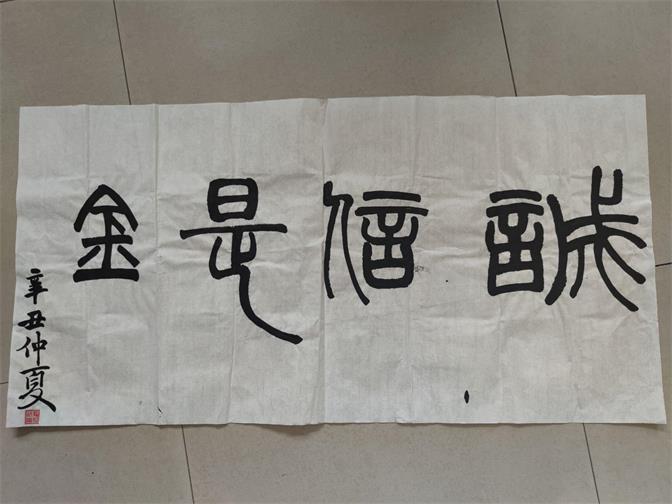 誠信是金
辛丑仲夏